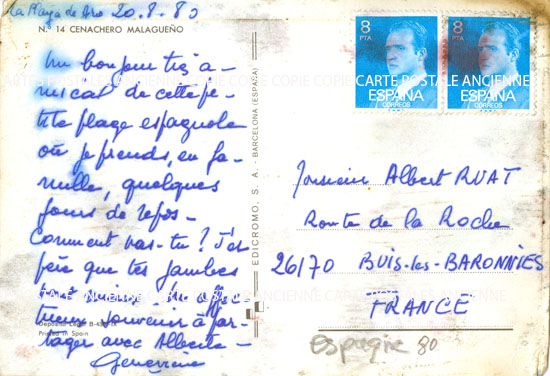 La Playa de Aro 20.8.80
N.º 14 CENACHERO MALAGUEÑO
Un bonjour très a-
mical de cette pe-
tite plage espagnole
où je prends, en fa-
mille, quelques
jours de repos -
Comment vas-tu ? J'es-
père que tes jambes
tueux souvenir à par-
tager avec Alberte -
Geneviève
Deposito Legal B-
Printed in Spain
EDICROMO, S. A. - BARCELONA (ESPAÑA)
8
PTA
ESPAÑA
CORREOS
8
PTA
ESPAÑA
CORREOS
CARTE POSTALE ANCIENNE COPIE COPIE CARTE POSTALE ANCIENNE
Monsieur Albert RUAT
Route de la Roche
26170 BUIS-les-BARONNIES
FRANCE
Espagne 80